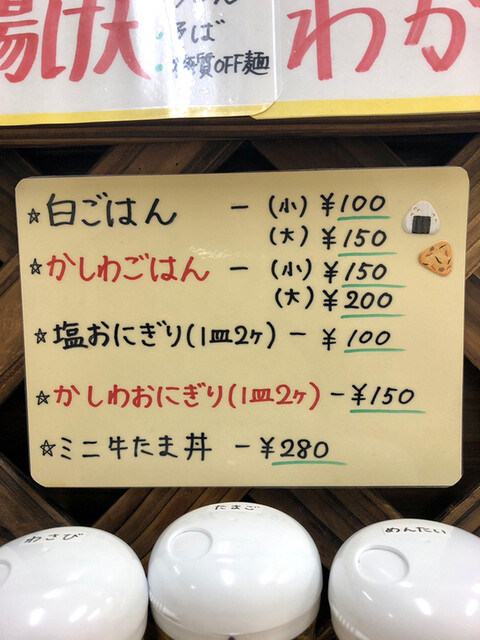 揚げ天
そば
糖質OFF麺
わか
☆白ごはん － (小) ¥100
(大) ¥150
☆かしわごはん － (小) ¥150
(大) ¥200
☆塩おにぎり(1皿2ヶ) － ¥100
☆かしわおにぎり(1皿2ヶ) －¥150
☆ミニ牛たま丼 －¥280
わさび
たまご
めんたい